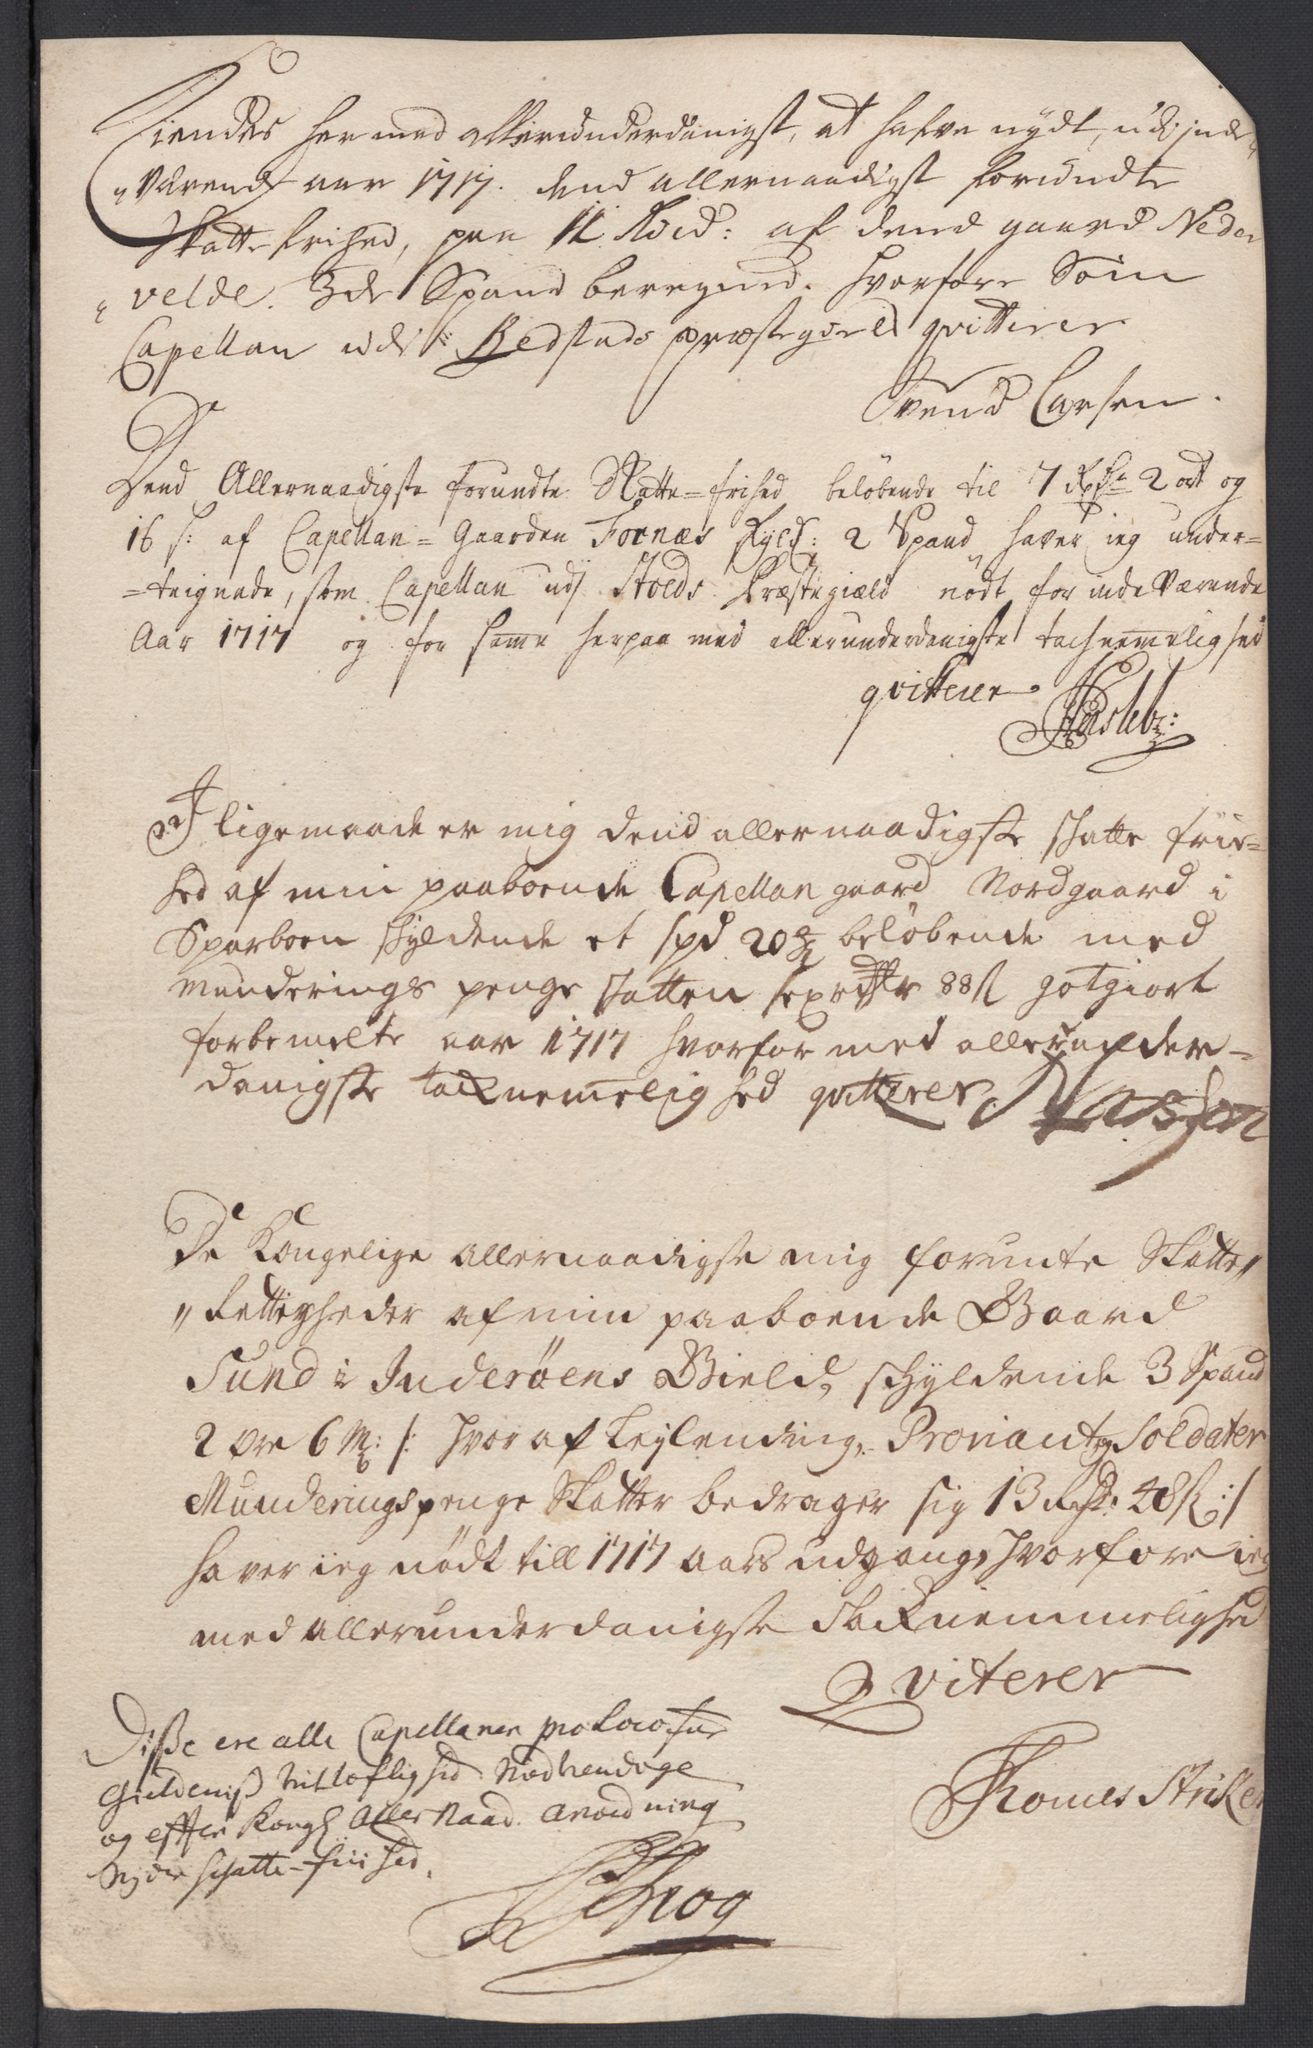 Kiendes hermed allerunderdanigst, at hafve nydt, udj inde„
„værende aar 1717. dend allernaadigst forundte
Skatte frihed, paa 11 af dend gaard Neder
„velde. 3de Spand beregned. hvorfore Som
Capellan udi Bedstads præstegield qvitterer
Svend Carsen.
Dend Allernaadigste forundte Skatte=frihed beløbende til 7 Rdr 2 ort og
16 s: af Capellan=Gaarden Fornæs Skyld: 2 Spand haver ieg under=
=teignede, som Capellan udj Stods Præstegiæld nødt for indeværende
Aar 1717 og for samme herpaa med allerunderdanigste tachnemelighed
qvitterer.
I ligemaade er mig dend allernaadigste skatte frie=
hed af min paaboende Capellan gaard Nordgaard i
Sparboen skyldende et spd 20 beløbende med
munderings penge skatten sex rdr 88 s gotgiort
forbemelte aar 1717 hvorfor med allerunder=
danigste tacknemelighed qvitterer
De Kongelige allernaadigst mig forunte Skatte„
„Rettigheder af min paaboende Gaard
Sund i Inderøens Gield, skyldende 3 Spand
2 øre 6 M: /: hvoraf Leylending, Proviant og Soldater
Munderings penge Skatter bedrager sig 13 rd. 48 s :/
haver ieg nødt till 1717 aars udgang, hvorfore ieg
med allerunderdanigste Tacknemmelighed
Qviterer
Thomes Stricker
Disse ere alle Capellaner pro loco
og efter Kongl Aller Naad. anordning
Nyder schatte=friihed.